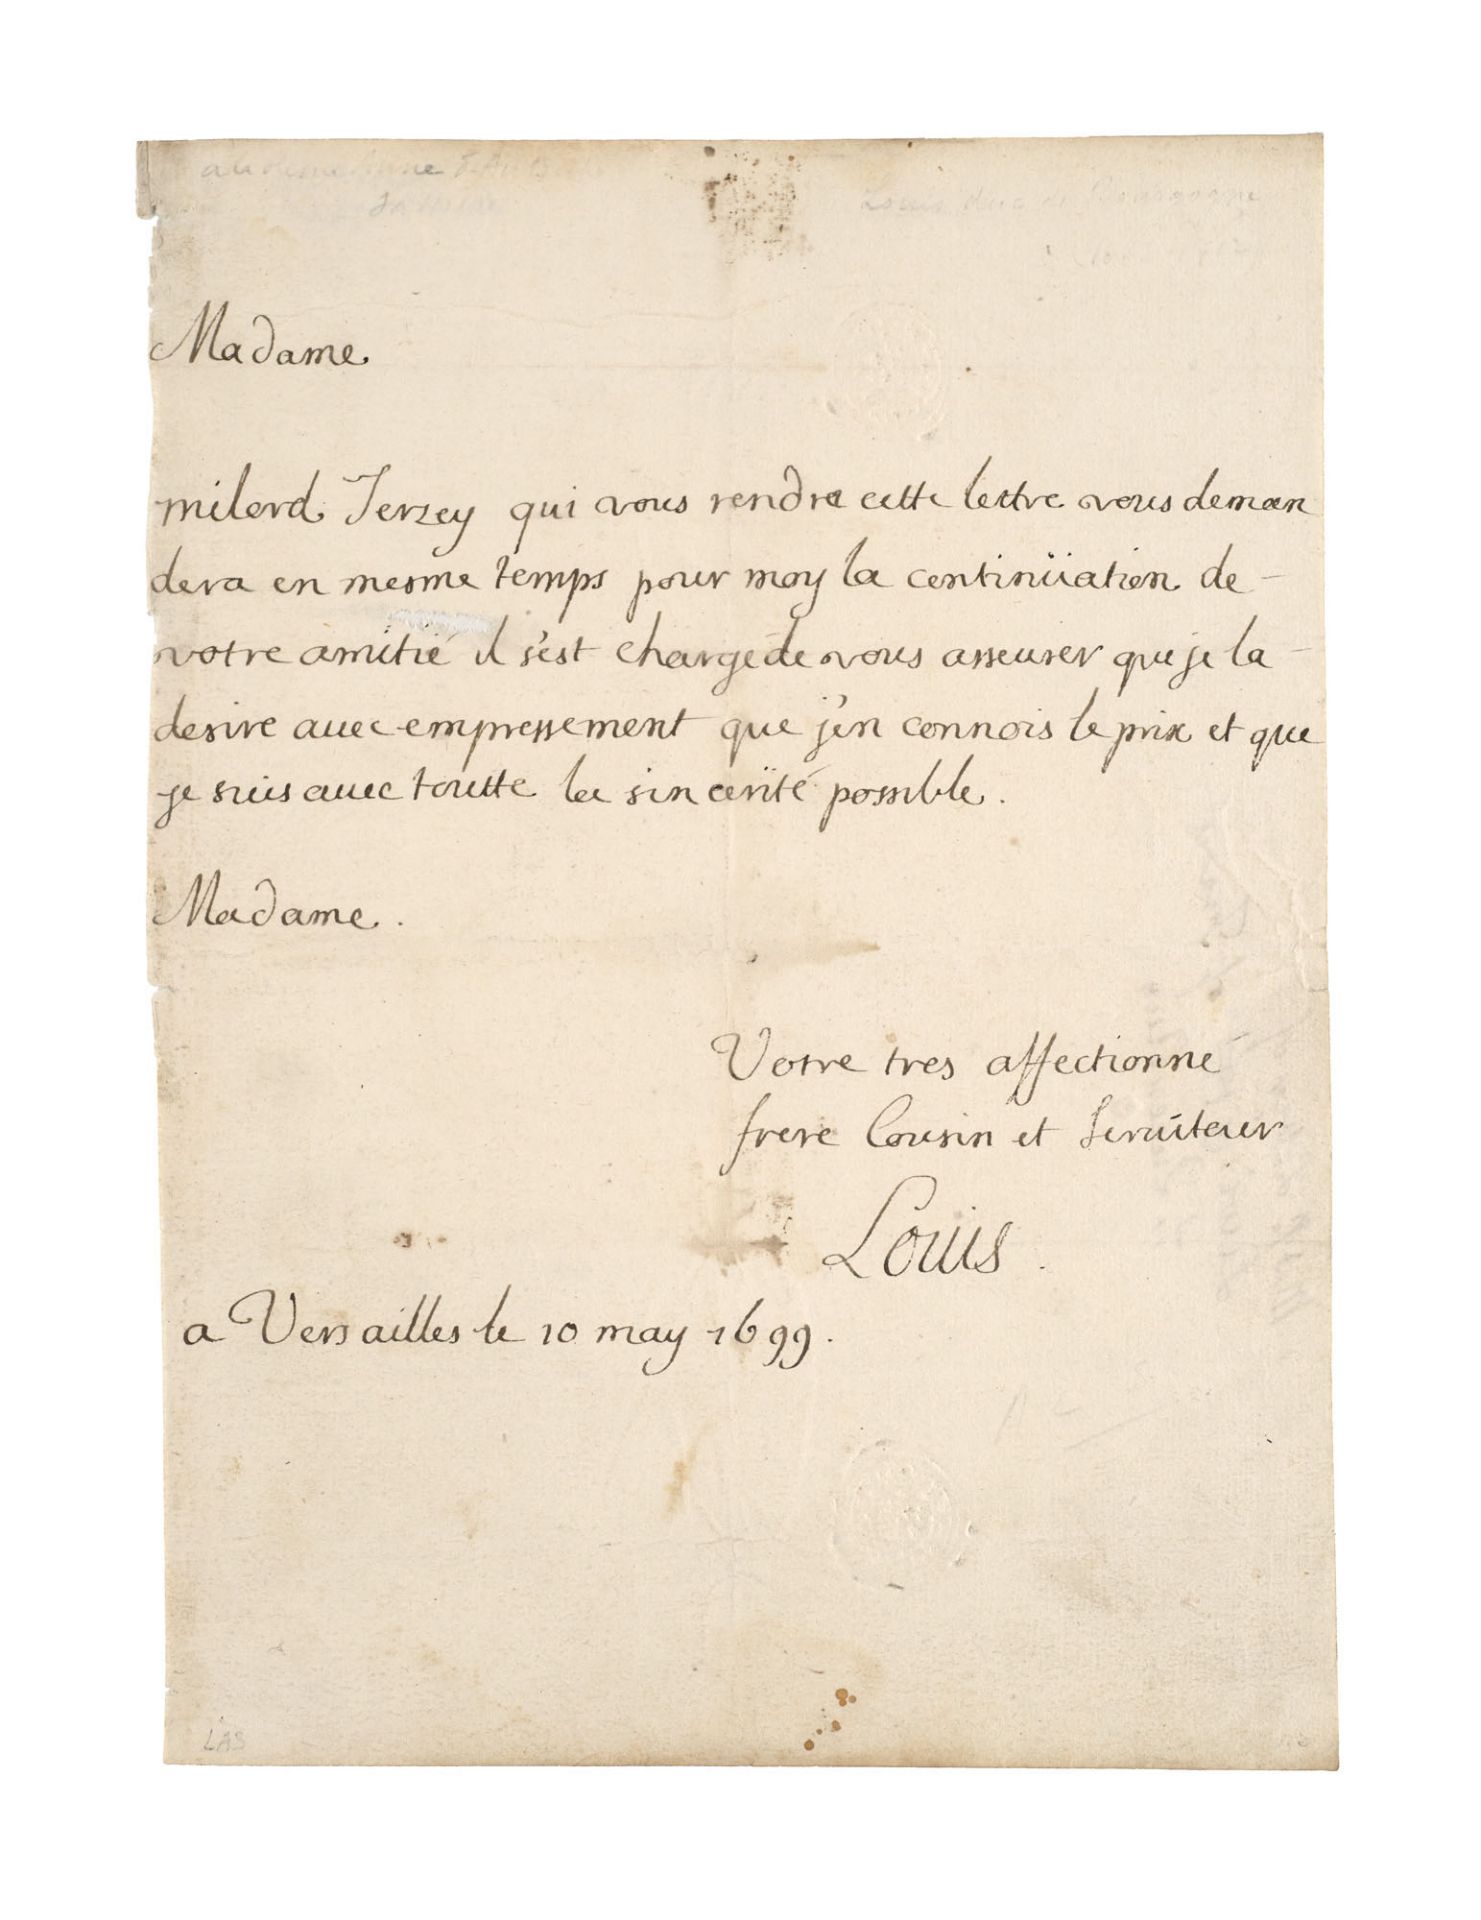 Louis duc de Bourgogne
Madame
milord Jerzey qui vous rendra cette lettre vous deman
dera en mesme temps pour moy la continüation de -
votre amitié il s'est chargé de vous asseurer que je la -
desire auec empressement que j'en connois le prix et que
je suis auec toutte la sincerité possible.
Madame.
Votre tres affectionné
frere Cousin et Seruiteur
Louis.
a Versailles le 10 may 1699.
LAS